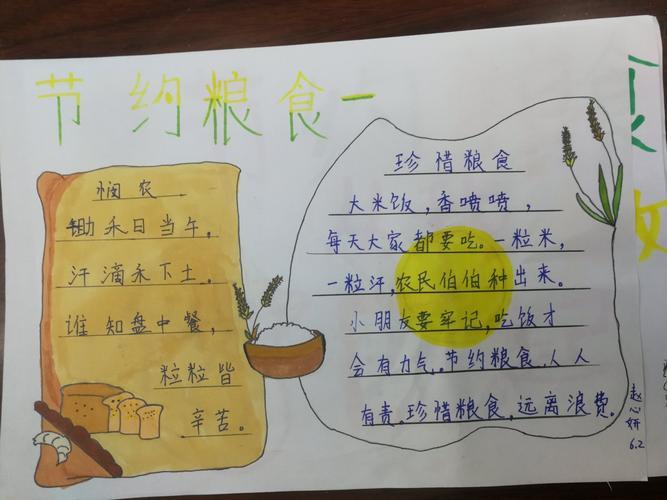 节约粮食一
悯农
锄禾日当午,
汗滴禾下土,
谁知盘中餐,
粒粒皆
辛苦。
珍惜粮食
大米饭,香喷喷,
每天大家都要吃。一粒米,
一粒汗,农民伯伯种出来。
小朋友要牢记,吃饭才
会有力气。节约粮食,人人
有责。珍惜粮食,远离浪费。
赵心妍
6.2